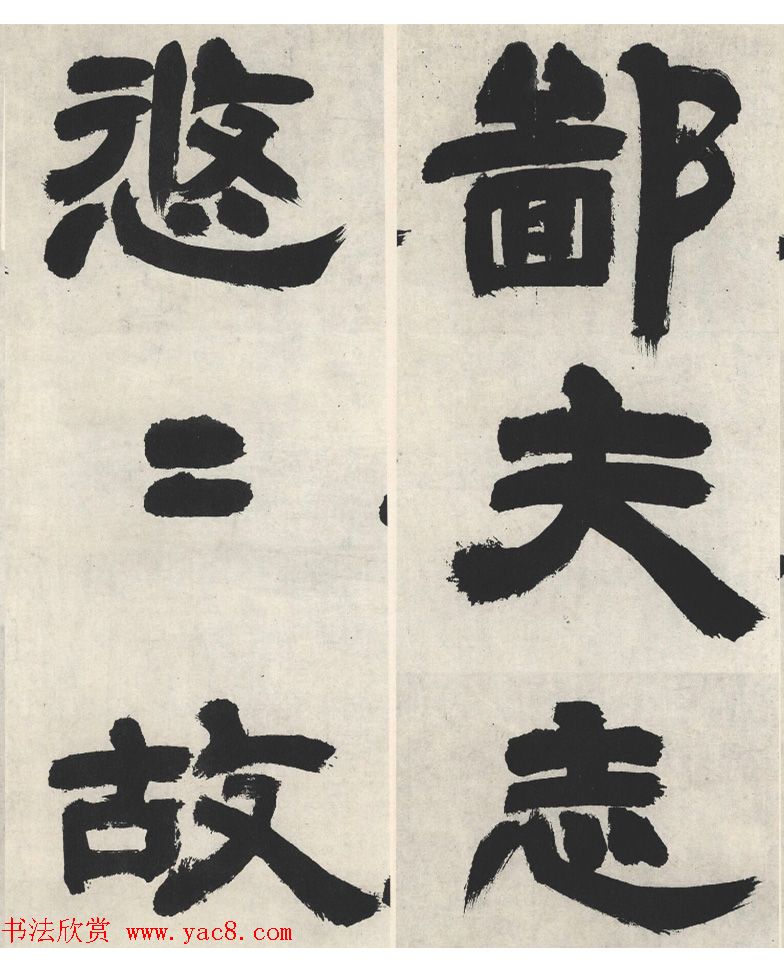 鄙夫志
悠〻故
书法欣赏 www.yac8.com